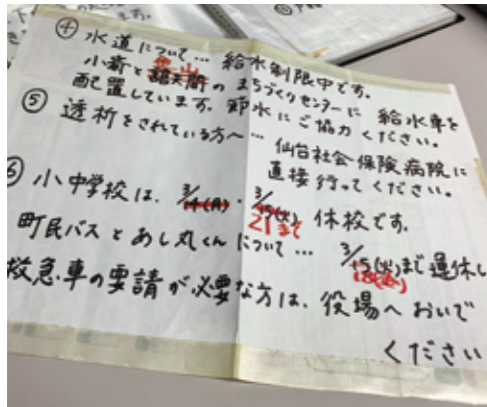 ④ 水道について… 給水制限中です。
小斎と舘矢間のまちづくりセンターに 給水車を
配置しています。節水にご協力ください。
⑤ 透析をされている方へ… 仙台社会保険病院に
直接行ってください。
小中学校は、3/14(月)・3/15(火) 休校です。
21まで
町民バスとあし丸くんについて… 3/15(火)まで運休し
18(金)
救急車の要請が必要な方は、役場へおいで
ください